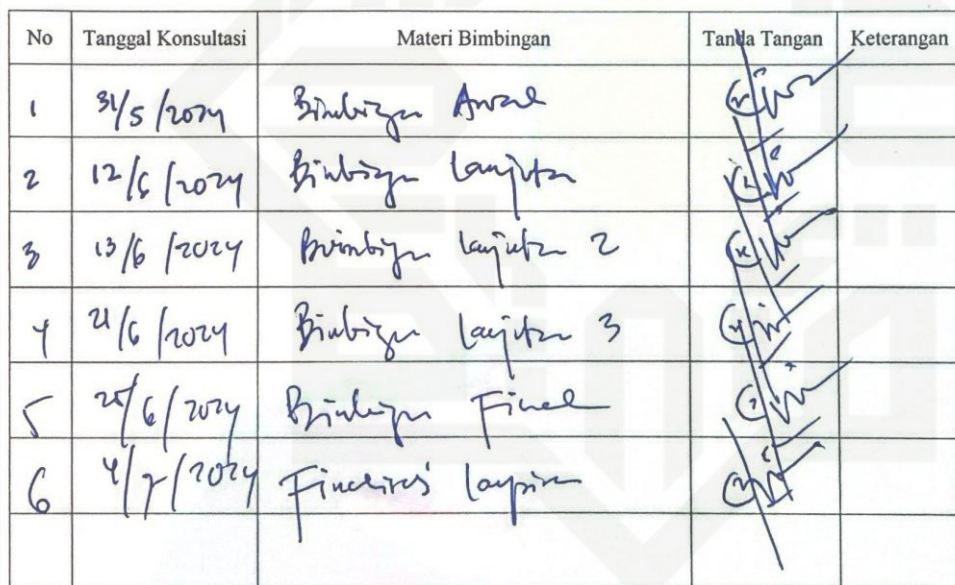 No Tanggal Konsultasi Materi Bimbingan Tanda Tangan Keterangan
1 31/5/2024 Bimbingan Awal
2 12/6/2024 Bimbingan Lanjutan
3 13/6/2024 Bimbingan Lanjutan 2
4 21/6/2024 Bimbingan Lanjutan 3
5 25/6/2024 Bimbingan Final
6 4/7/2024 Finalisasi